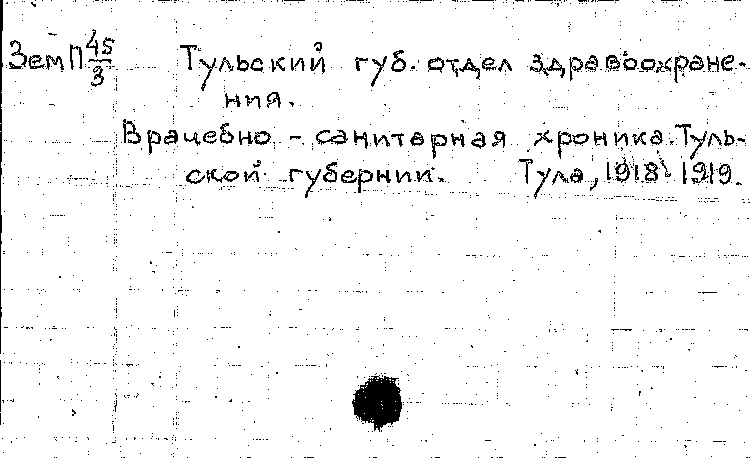 ЗемП 45/3 Тульский губ. отдел здравоохране-
ния.
Врачебно - санитарная хроника Туль-
ской губернии. Тула, 1918-1919.